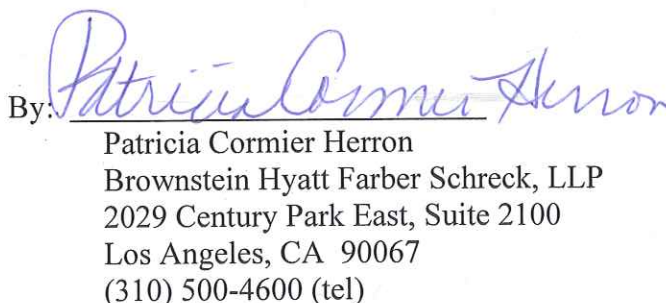 By: Patricia Cormier Herron
Patricia Cormier Herron
Brownstein Hyatt Farber Schreck, LLP
2029 Century Park East, Suite 2100
Los Angeles, CA 90067
(310) 500-4600 (tel)